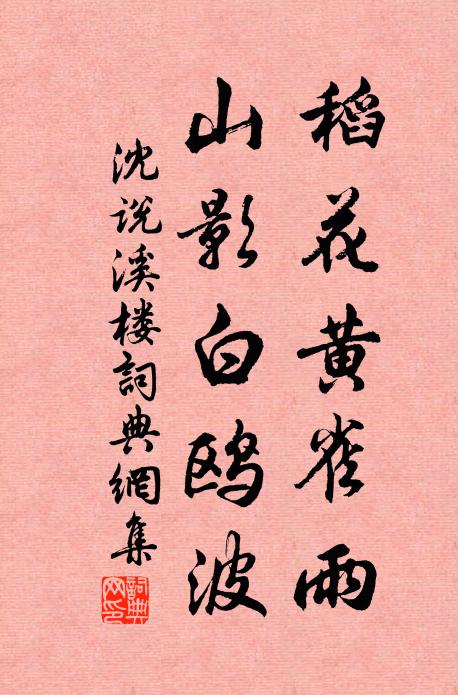 稻花黄雀雨
山影白鸥波
沈说溪楼詞典網集
詞典网印